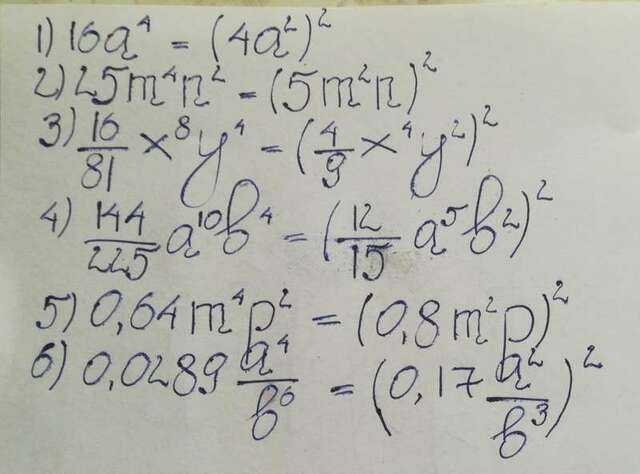 1) 16a⁴ = (4a²)²
2) 25m⁴n² = (5m²n)²
3) 16/81 x⁸y⁴ = (4/9 x⁴y²)²
4) 144/225 a¹⁰b⁴ = (12/15 a⁵b²)²
5) 0,64m⁴p² = (0,8m²p)²
6) 0,0289 a⁴/b⁶ = (0,17 a²/b³)²